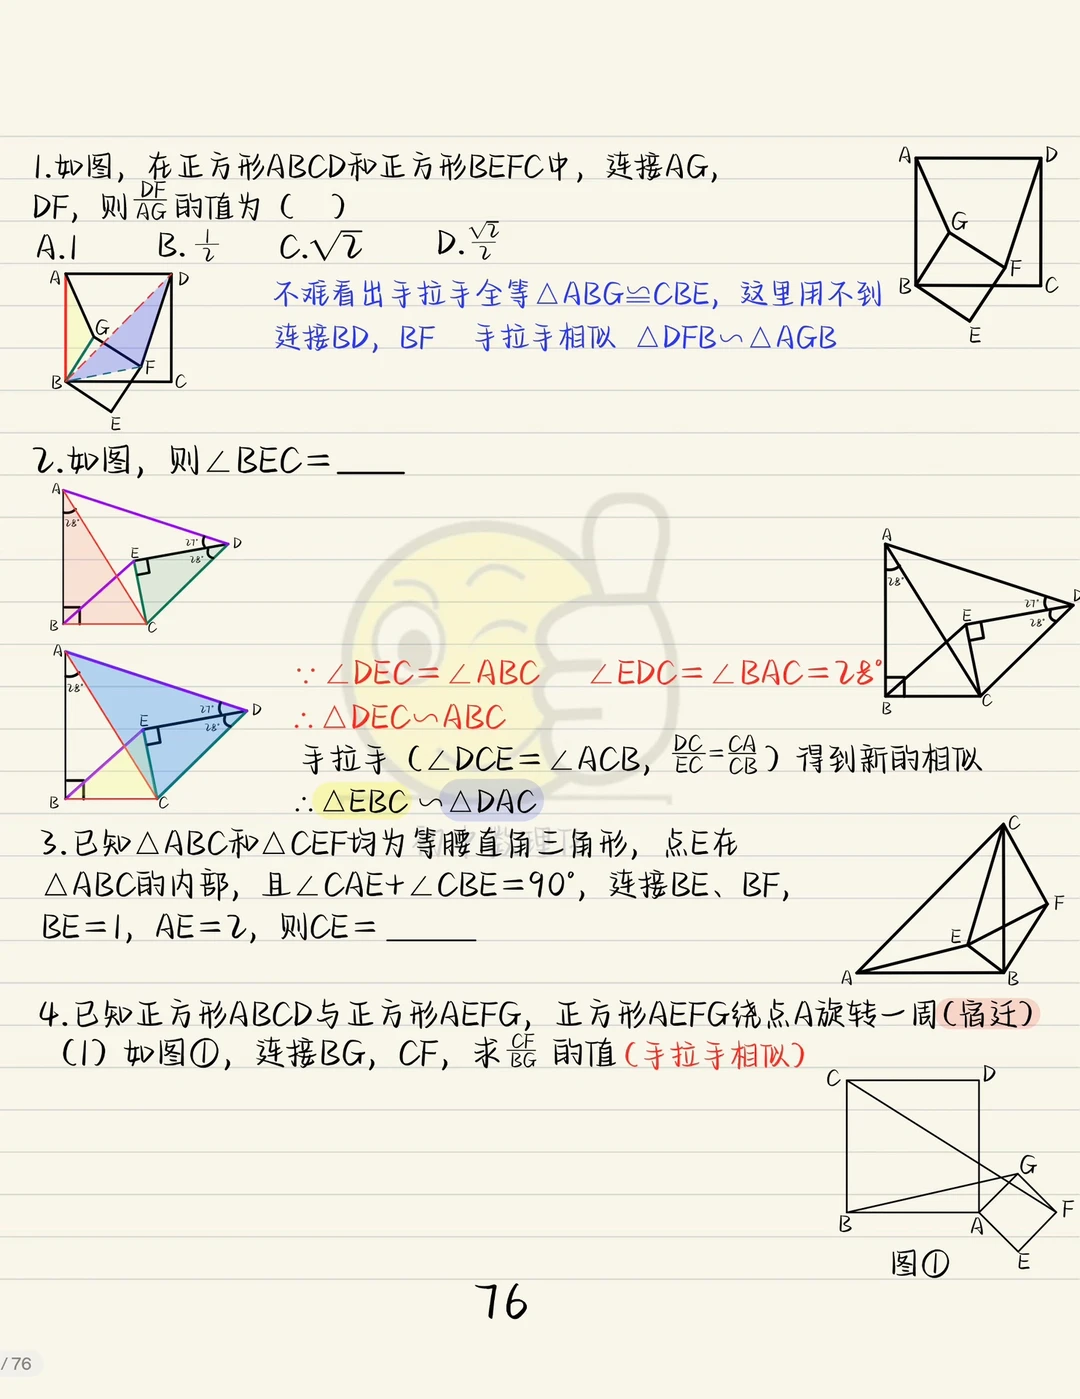 1.如图，在正方形ABCD和正方形BEFC中，连接AG，
DF，则DF/AG的值为（ ）
A.1 B.1/2 C.√2 D.√2/2
A D G F B C E
A D G F B C E
不难看出手拉手全等△ABG≌CBE，这里用不到
连接BD，BF 手拉手相似 △DFB∽△AGB
2.如图，则∠BEC=____
A 28° 27° D 28° E B C
A 28° 27° D 28° E B C
A 28° 27° D 28° E B C
∵∠DEC=∠ABC ∠EDC=∠BAC=28°
∴△DEC∽ABC
手拉手（∠DCE=∠ACB，DC/EC=CA/CB）得到新的相似
∴△EBC∽△DAC
3.已知△ABC和△CEF均为等腰直角三角形，点E在
△ABC的内部，且∠CAE+∠CBE=90°，连接BE、BF，
BE=1，AE=2，则CE=____
C F E A B
4.已知正方形ABCD与正方形AEFG，正方形AEFG绕点A旋转一周(宿迁)
（1）如图①，连接BG，CF，求CF/BG的值(手拉手相似)
C D G F B A E
图①
76
/ 76